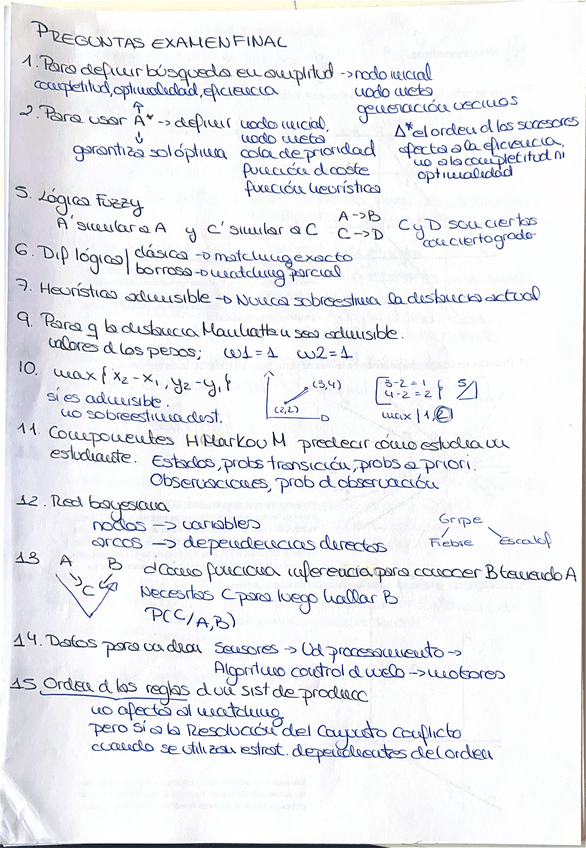 PREGUNTAS EXAMEN FINAL
1. Para definir búsqueda en amplitud → nodo inicial
completitud, optimalidad, eficiencia
nodo meta
generación vecinos
2. Para usar A* → definir nodo inicial,
nodo meta
garantiza sol óptima
cola de prioridad
función d coste
función heurística
Δ* el orden d los sucesores
afecta a la eficiencia,
no a la completitud ni
optimalidad
5. Lógica Fuzzy
A' similar a A y C' similar a C
A → B
C → D
C y D son ciertos
con cierto grado
6. Dif lógica
clásica → matching exacto
borrosa → matching parcial
7. Heurística admisible → Nunca sobreestima la distancia actual
9. Para q la distancia Manhattan sea admisible.
valores d los pesos; w1 = 1 w2 = 1
10. max { x2 - x1, y2 - y1 }
sí es admisible.
no sobreestima dest.
(3,4)
(2,2)
3-2 = 1
4-2 = 2
max {1,2
11. Componentes H Markov M predecir cómo estudia un
estudiante. Estados, probs transición, probs a priori.
Observaciones, prob d observación
12. Red bayesiana
nodos → variables
arcos → dependencias directas
Gripe
Fiebre Escalof
13 A B
C
d cómo funciona inferencia para conocer B teniendo A
Necesitas C para luego hallar B
P(C/A,B)
14. Datos para un dron Sensores → Ud procesamiento →
Algoritmo control d vuelo → motores
15 Orden d las reglas d un sist de producc
no afecta al matching
pero sí a la Resolución del Conjunto Conflicto
cuando se utilizan estrat. dependientes del orden